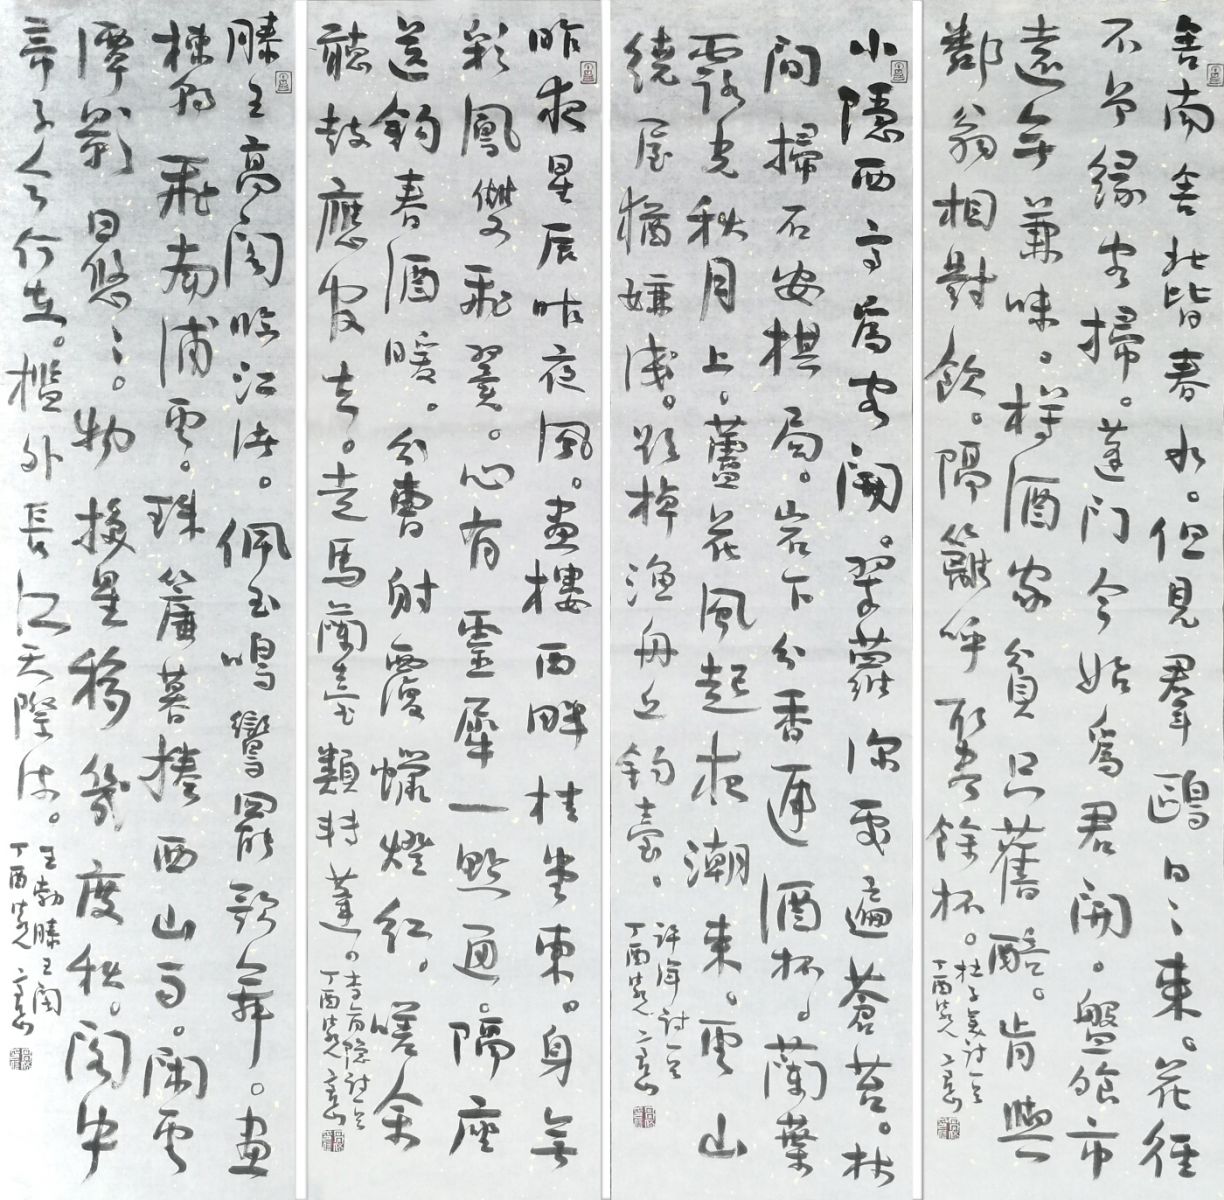 舍南舍北皆春水。但見羣鷗日々來。花徑
不曾緣客掃。蓬門今始為君開。盤飧市
遠無兼味。樽酒家貧只舊醅。肯與
鄰翁相對飲。隔籬呼取盡餘杯。
杜子美詩一首
丁酉
小隱西亭為客開。翠蘿深處遍蒼苔。林
間掃石安棋局。岩下分香遞酒杯。蘭葉
露光秋月上。蘆花風起夜潮來。雲山
繞屋猶嫌淺。欲棹漁舟近釣臺。
許渾詩一首
丁酉
昨夜星辰昨夜風。畫樓西畔桂堂東。身無
彩鳳雙飛翼。心有靈犀一點通。隔座
送鈎春酒暖。分曹射覆蠟燈紅。嗟余
聽鼓應官去。走馬蘭臺類轉蓬。
李商隱詩一首
丁酉
滕王高閣臨江渚。佩玉鳴鸞罷歌舞。畫
棟朝飛南浦雲。珠簾暮捲西山雨。閑雲
潭影日悠々。物換星移幾度秋。閣中
帝子今何在。檻外長江天際流。
王勃滕王閣
丁酉